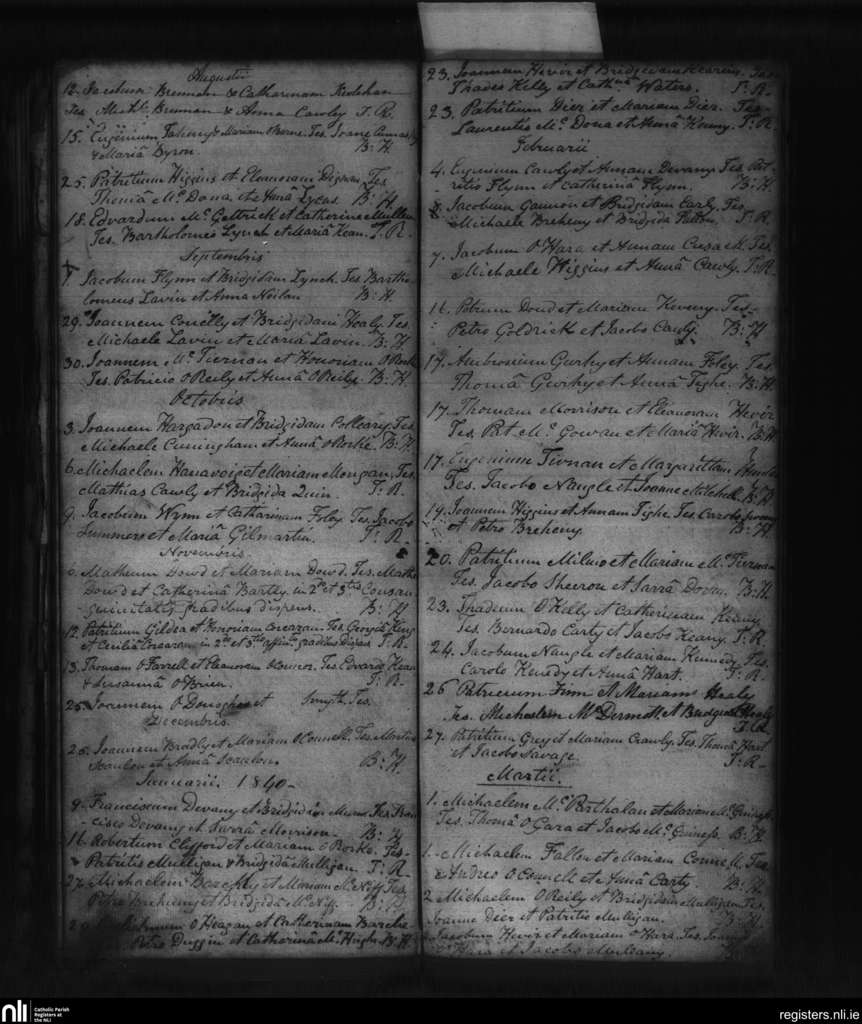 Augustii
12. Jacobum Brennan & Catharinam
Tes. Michl. Brennan & Anna Cawley T. R.
15. Eugenium & Mariam Tes. Joane
& Mariâ Byron. B: H
25. Patritium Higgins et Eleanoram Tes
Thomâ Mc. Dona et Annâ Lycas. B: H
18. Edvardum Mc. Gettrick et Catherine Mullen
Tes. Bartholomeo Lynch et Mariâ Kean. T. R.
Septembris
Jacobum Flynn et Bridgidam Lynch. Tes. Bartho-
lomeus Lavin et Anna B: H
29. Joannem et Bridgidam Healy. Tes.
Michaele Lavin et Mariâ Lavin. B: H
30. Joannem Mc. Tiernan et Honoriam O Rorke
Tes. Patricio O Reily et Annâ O Reily. B. H.
Octobris
3. Joannem Hargadon et Bridgidam Tes
Michaele Cuningham et Annâ O Rorke. B: H
6. Michaelem et Mariam Mongan. Tes.
Mathias Cawly et Bridgida Quin. T. R.
9. Jacobum Wynn et Catharinam Foley Tes. Jacobo
Summers et Mariâ Gilmartin. T. R.
Novembris.
Matheum Dowd et Mariam Dowd. Tes.
Dowd et Catherinâ Bartley in 2do et 3tio Consan-
guinitatis gradibus dispens. B: H
12. Patritium Gildea et Honoriam Corcoran Tes. Georgiâ King
et Ceciliâ Corcoran in 2do et 3tio gradibus Dispens T. R.
13. Thomam O Farrell et Eleanoram O Connor. Tes Edvardo Kean
& Susannâ O Brien. T. R.
25. Joannem O Donoghue et Smyth. Tes.
Decembris
Joannem Bradly et Mariam O Connell. Tes. Martin
Scanlon et Annâ Scanlon. B: H
Januarii. 1840
9. Franciscum Devany et Bridgidam Tes. Fran-
cisco Devany et Sarrâ Morrison. B: H
Robertum Clifford et Mariam O Rorke. Tes-
Patritis Mulligan & Bridgidâ Mulligan. T. R.
27. Michaelem et Mariam Mc. Niff Tes.
Petro Breheny et Bridgidâ Mc. Niff. B: H
O Heagan et Catherinam
Petro Duggin et Catherinâ Mc. Hugh. B. H.
23. Joannem Hevir et Bridgidam Tes
Thades Kelly et Cathnâ Waters. T. R.
23. Patritium Dier et Mariam Dier. Tes-
Laurentis Mc. Dona et Annâ Kenny. T: R
Februarii
4. Eugenium Cawly et Annam Devany. Tes. Pat-
ritis Flynn et Catherina Flynn. B: H
8. Jacobum Gannon et Bridgidam Early. Tes
Michaele Breheny et Bridgida Fallon. T: R
7. Jacobum O Hara et Annam Cusack. Tes
Michaele Higgins et Annâ Cawly. T: R-
16. Petrum Dowd et Mariam Keveny. Tes-
Petro Goldrick et Jacobo Cawly. B: H
17. Ambrosium et Annam Foley. Tes
Thomâ et Annâ Tighe. B: H
17. Thomam Morrison et Eleanoram Hevir
Tes. Pat. Mc. Gowan et Mariâ Hevir. B: H
17. Eugenium Tivnan et Margarittam
Tes. Jacobo Nangle et Joanne Mitchell. B: H
19. Joannem Higgins et Annam Tighe. Tes. Carolo
et Petro Breheny. B: H
20. Patritium Milmo et Mariam Mc. Tiernan
Tes. Jacobo Sheeron et Sarrâ B: H
23. Thadeum O Kelly et Catherinam Keany
Tes. Bernardo Carty et Jacobo Keany. T. R
24. Jacobum Nangle et Mariam Kennedy Tes
Carolo Kenedy et Annâ Hart. T. R
26 Finn et Mariam Healy
Tes. Michaelem Mc Dermott et Bridgida Healy
T. R.
27. Patritium Grey et Mariam Crawly. Tes. Thomâ Hart
et Jacobo Savage. T. R-
Martii.
1. Michaelem Mc. Parthalan et Mariam Mc. Guiness
Tes. Thomâ O Gara et Jacobo Mc. Guiness. B: H
1. Michaelem Fallon et Mariam Connell, Tes
Andreo O Connell et Annâ Carty B: H
2 Michaelem O Reily et Bridgidam Mulligan Tes.
Joanne Dier et Patritio Mulligan. B: H
Jacobum Hevir et Mariam O Hara. Tes.
O Hara et Jacobo
nli
Catholic Parish
Registers at
the NLI
registers.nli.ie